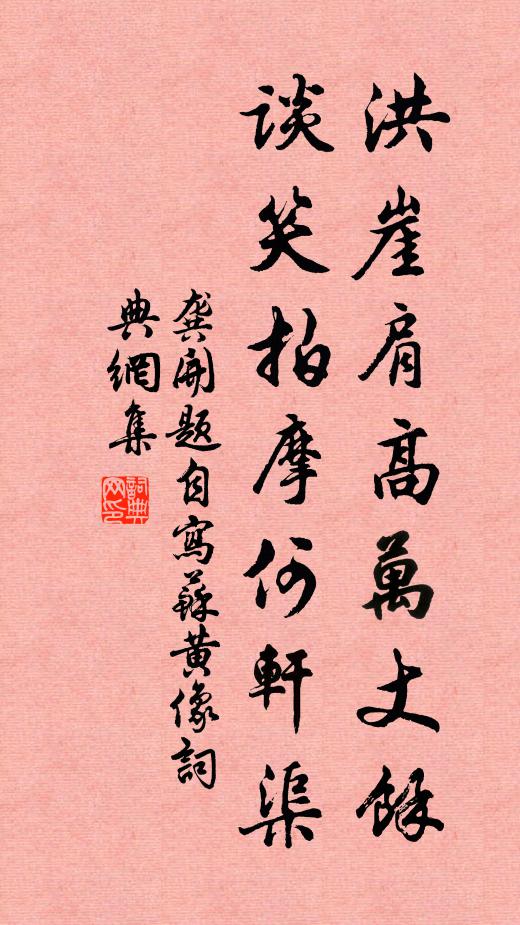 洪崖肩高萬丈餘
談笑拍摩何軒渠
龔開題自寫蘇黃像詞
典網集
詞典網印